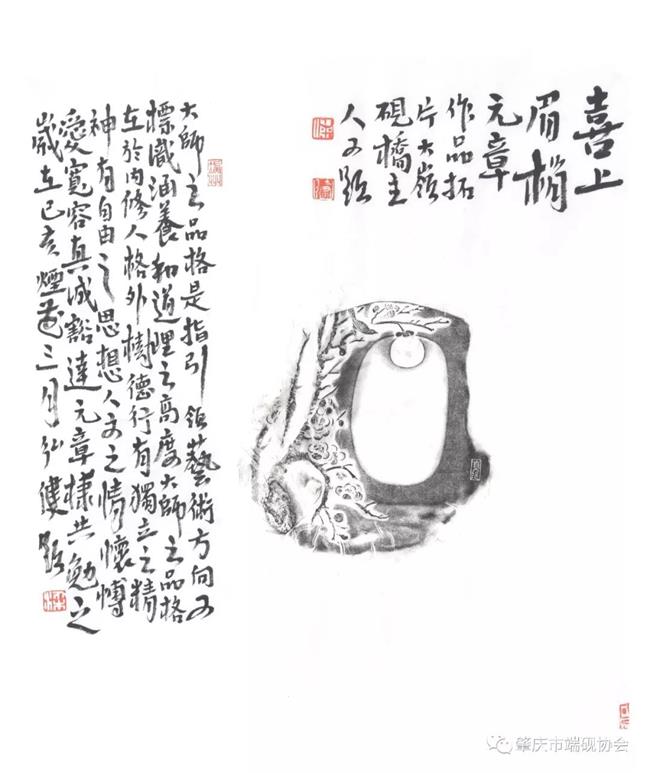 喜上
眉梢
元章
作品拓
片大嶺
硯橋主
人又題
大師之品格是指引藝術方向又
標識涵養和道理之高度大師之品格
在於內修人格外樹德行有獨立之精
神有自由之思想人文之情懷博
愛寬容真誠豁達元章棣共勉之
歲在己亥煙花三月弘健題
肇庆市端砚协会